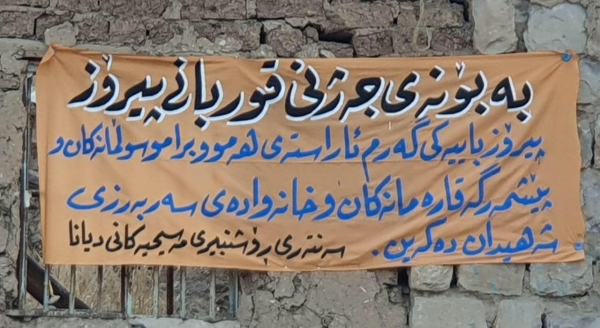 بە بۆنەی جەژنی قوربانی پیرۆز
پیرۆزباییەکی گەرم ئاراستەی هەموو برا موسوڵمانەکان و
پێشمەرگە قارەمانەکان و خانەوادەی سەربەرزی
شەهیدان دەکەین. سەنتەری ڕۆشنبیری مەسیحیەکانی دیانا